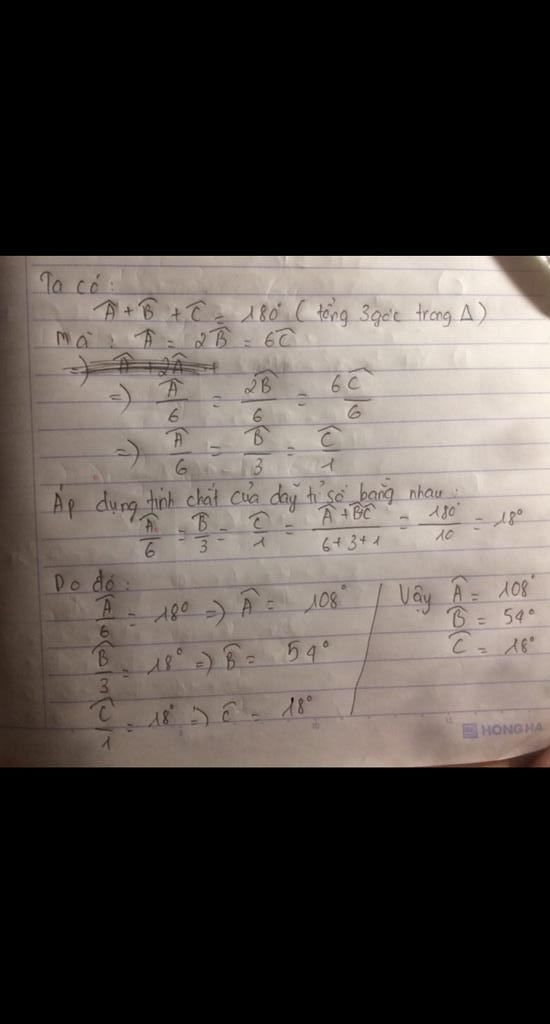 Ta có :
Â + B̂ + Ĉ = 180° ( tổng 3 góc trong Δ )
Mà : Â = 2B̂ = 6Ĉ
=> Â/6 = 2B̂/6 = 6Ĉ/6
=> Â/6 = B̂/3 = Ĉ/1
Áp dụng tính chất của dãy tỉ số bằng nhau :
Â/6 = B̂/3 = Ĉ/1 = Â + B̂Ĉ/6+3+1 = 180°/10 = 18°
Do đó :
Â/6 = 18° => Â = 108°
B̂/3 = 18° => B̂ = 54°
Ĉ/1 = 18° => Ĉ = 18°
Vậy Â = 108°
B̂ = 54°
Ĉ = 18°
HONG HA